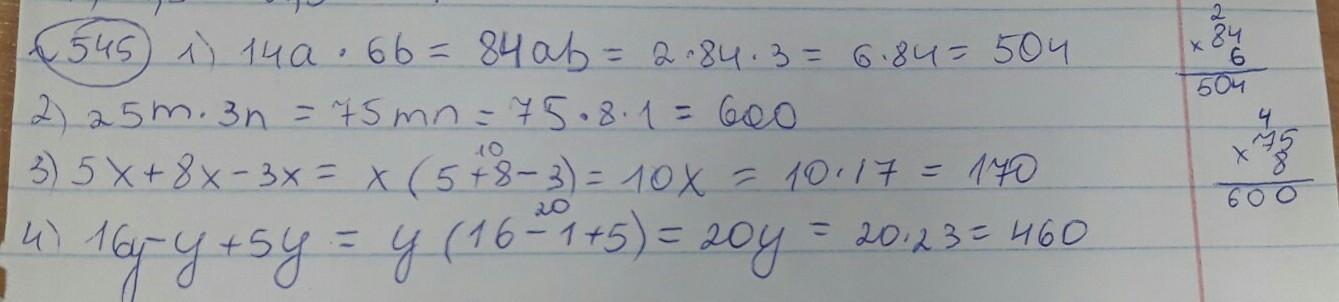 545 1) 14a · 6b = 84ab = 2·84·3 = 6·84 = 504
2) 25m·3n = 75mn = 75·8·1 = 600
10
3) 5x+8x-3x = x(5+8-3) = 10x = 10·17 = 170
20
4) 16y-y+5y = y(16-1+5) = 20y = 20·23 = 460
2
84
x 6
504
4
75
x 8
600